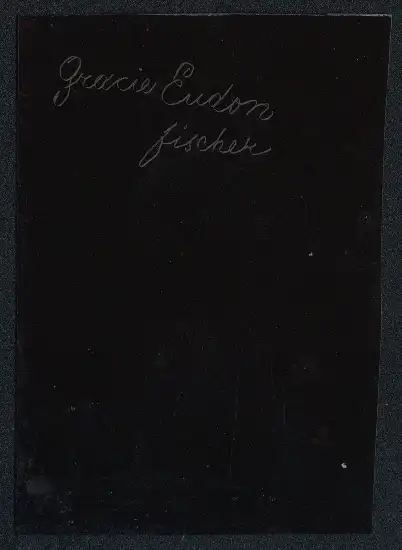 Gracie Eudon
fischer